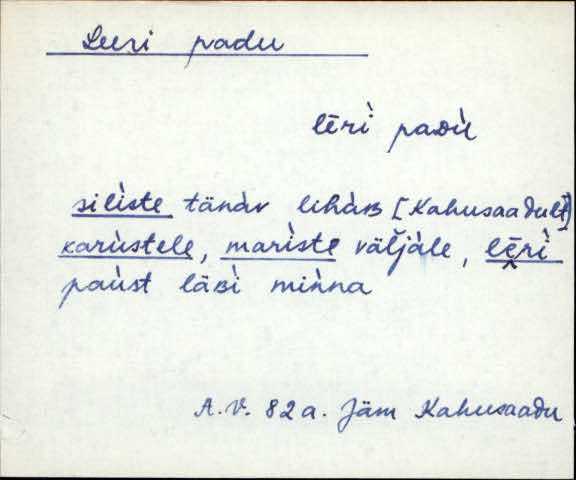 Leeri padu
lēri paᴅù
silìste tänàv lihàʙ [Kahusaadult]
karùstele, marìste väljàle, lēri
paùst läʙì mìnna
A.V. 82 a. Jäm Kahusaadu